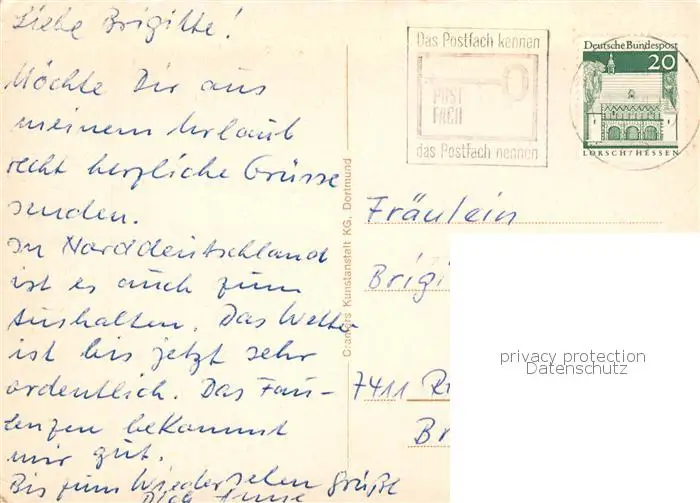 Liebe Brigitte!
Möchte Dir aus
meinem Urlaub
recht herzliche Grüsse
senden.
In Norddeutschland
ist es auch zum
Aushalten. Das Wetter
ist bis jetzt sehr
ordentlich. Das Fau-
lenzen bekommt
mir gut.
Bis zum Wiedersehen grüßt
Dich Anne
Cramers Kunstanstalt KG, Dortmund
Das Postfach kennen
POST
FACH
das Postfach nennen
Deutsche Bundespost
20
LORSCH / HESSEN
Fräulein
Brigi
7411
privacy protection
Datenschutz